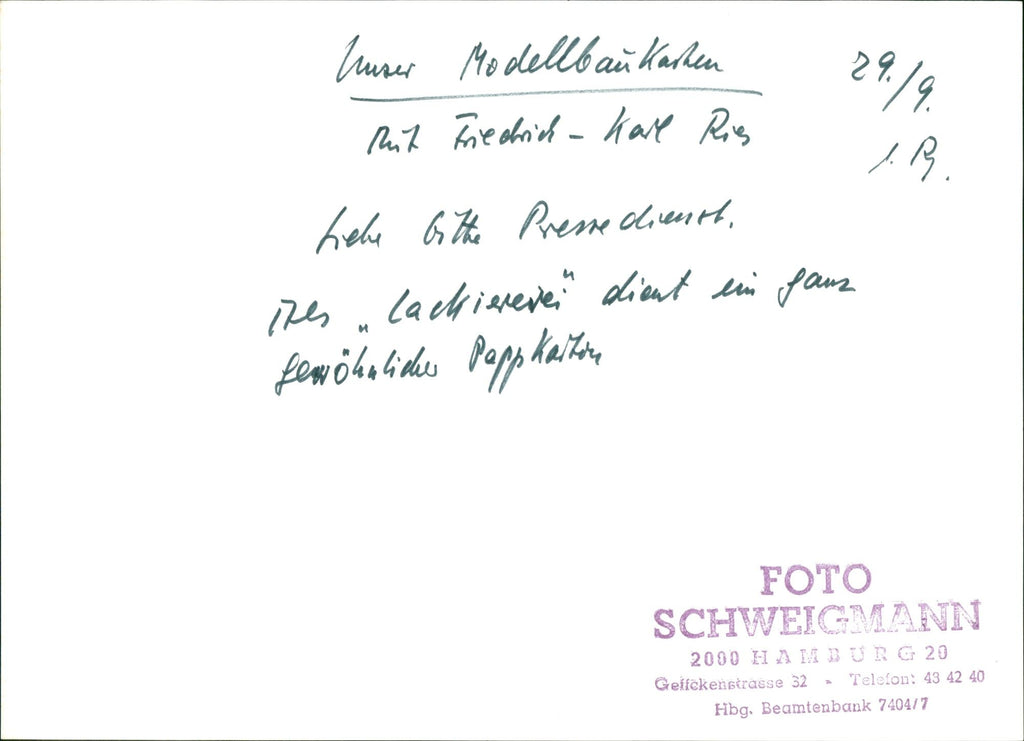 Unser Modellbaukasten
29./9.
mit Friedrich-Karl Ries
1. Pr.
Siehe bitte Pressedienst.
Als „Lackiererei" dient ein ganz
gewöhnlicher Pappkarton
FOTO
SCHWEIGMANN
2000 HAMBURG 20
Geffckenstrasse 32 - Telefon: 43 42 40
Hbg. Beamtenbank 7404/7